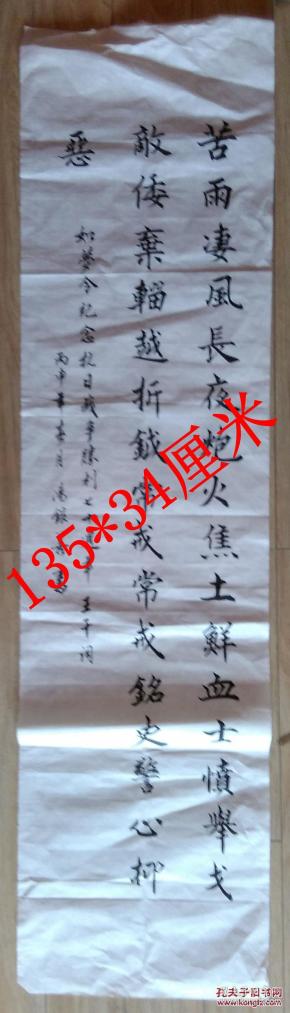 苦雨凄風長夜炮火焦土鮮血士憤舉戈
敵倭棄輜越折鉞常戒常戒銘史警心抑
惡
如夢令紀念抗日戰爭勝利七十週年 王千詞
丙申年春月馮銀書
135*34厘米
孔夫子旧书网